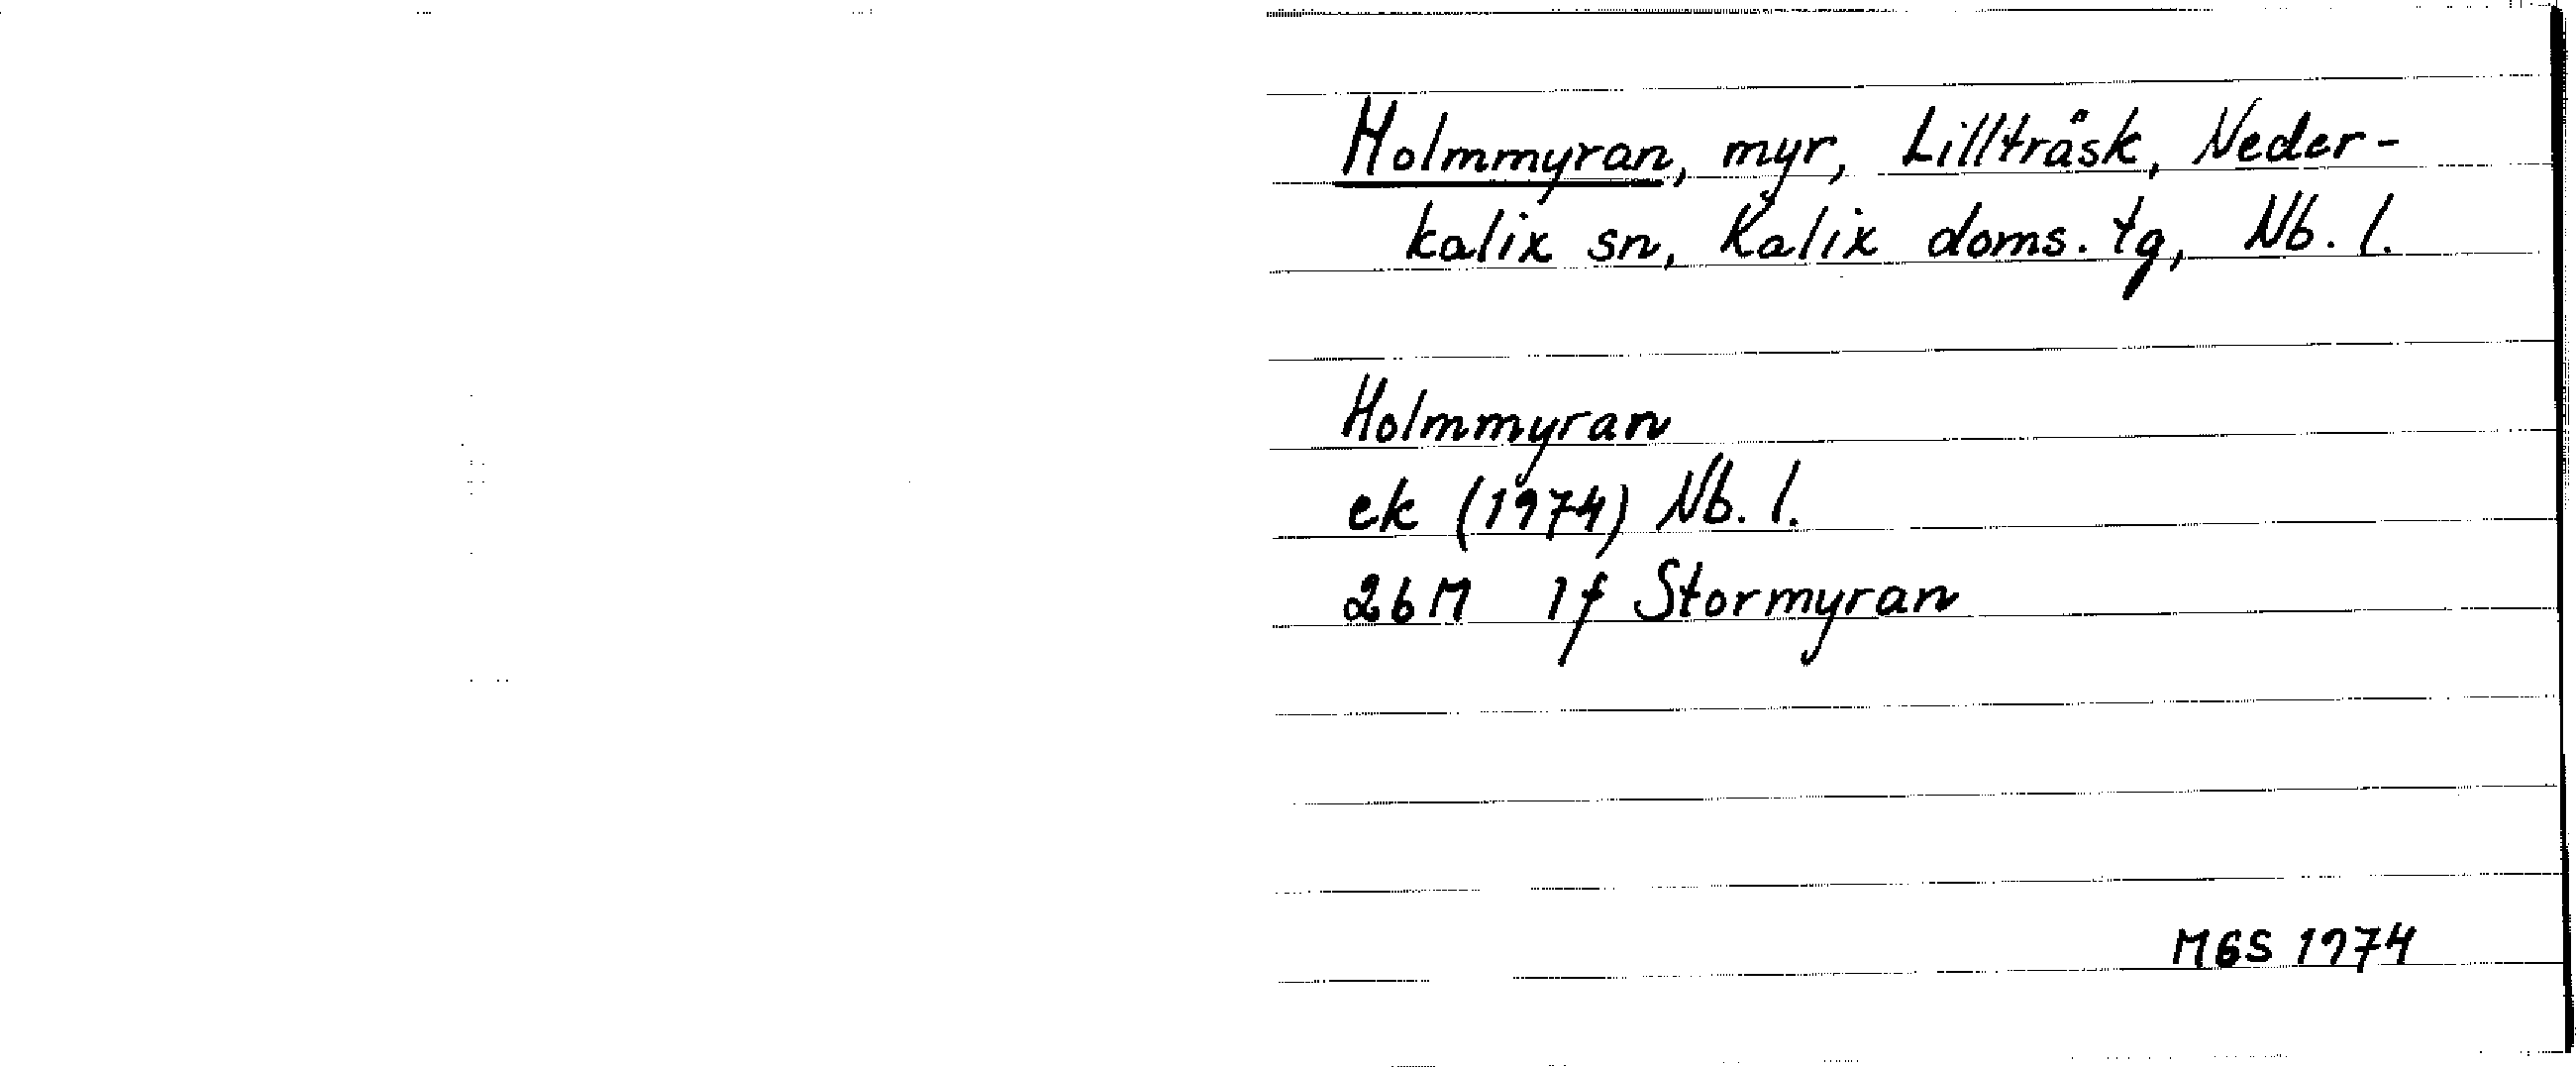 Holmmyran, myr, Lillträsk, Neder-
kalix sn, Kalix doms. tg, Nb. l.
Holmmyran
ek (1974) Nb. l.
26M 1f Stormyran
MGS 1974